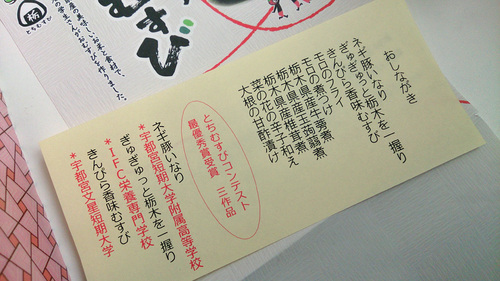 おしながき
ネギ豚いなり
ぎゅぎゅっと栃木を一握り
きんぴら香味むすび
モロのフライ
モロの煮つけ
栃木県産牛蒡煮
栃木県産玉蒟蒻煮
栃木県産椎茸煮
菜の花の辛子和え
大根の甘酢漬け
とちむすびコンテスト
最優秀賞受賞 三作品
ネギ豚いなり
*宇都宮短期大学附属高等学校
ぎゅぎゅっと栃木を一握り
*IFC栄養専門学校
きんぴら香味むすび
*宇都宮文星短期大学
むすび
栃
とちむすび